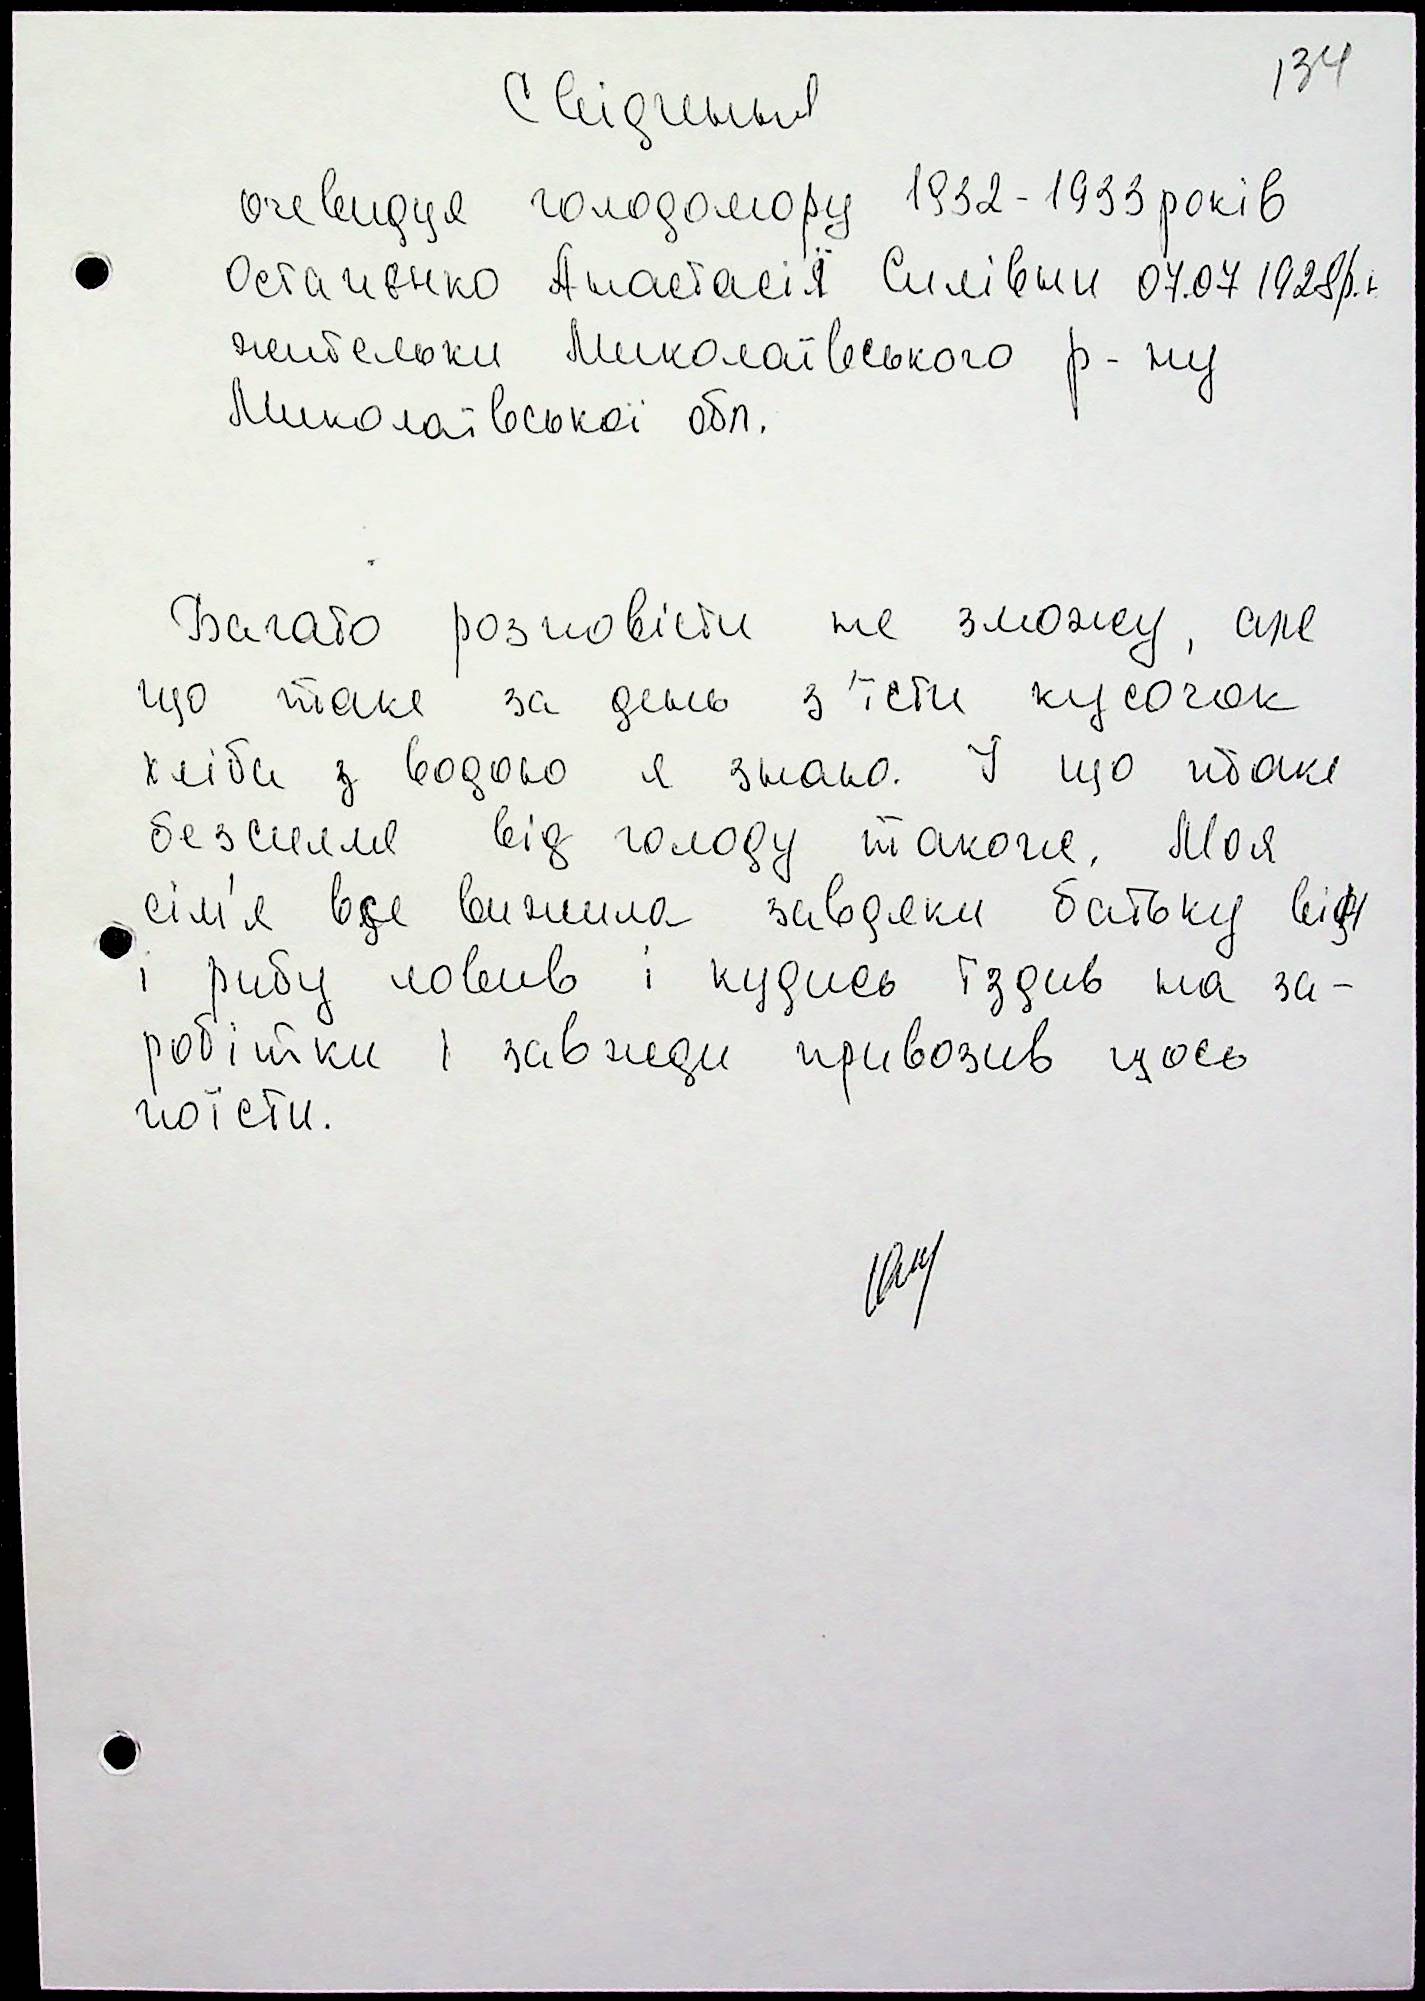 134
Свідчення
очевидця голодомору 1932-1933 років
Остапенко Анастасії Силівни 07.07 1928р.н.
жительки Миколаївського р-ну
Миколаївської обл.
Багато розповісти не зможу, але
що таке за день з'їсти кусочок
хліба з водою я знаю. І що таке
безсилля від голоду також. Моя
сім'я вся вижила завдяки батьку він
і рибу ловив і кудись їздив на за-
робітки і завжди привозив щось
поїсти.